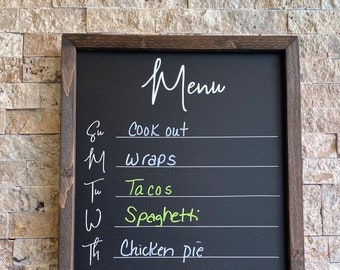 Menu
Su Cook out
M Wraps
Tu Tacos
W Spaghetti
Th Chicken pie